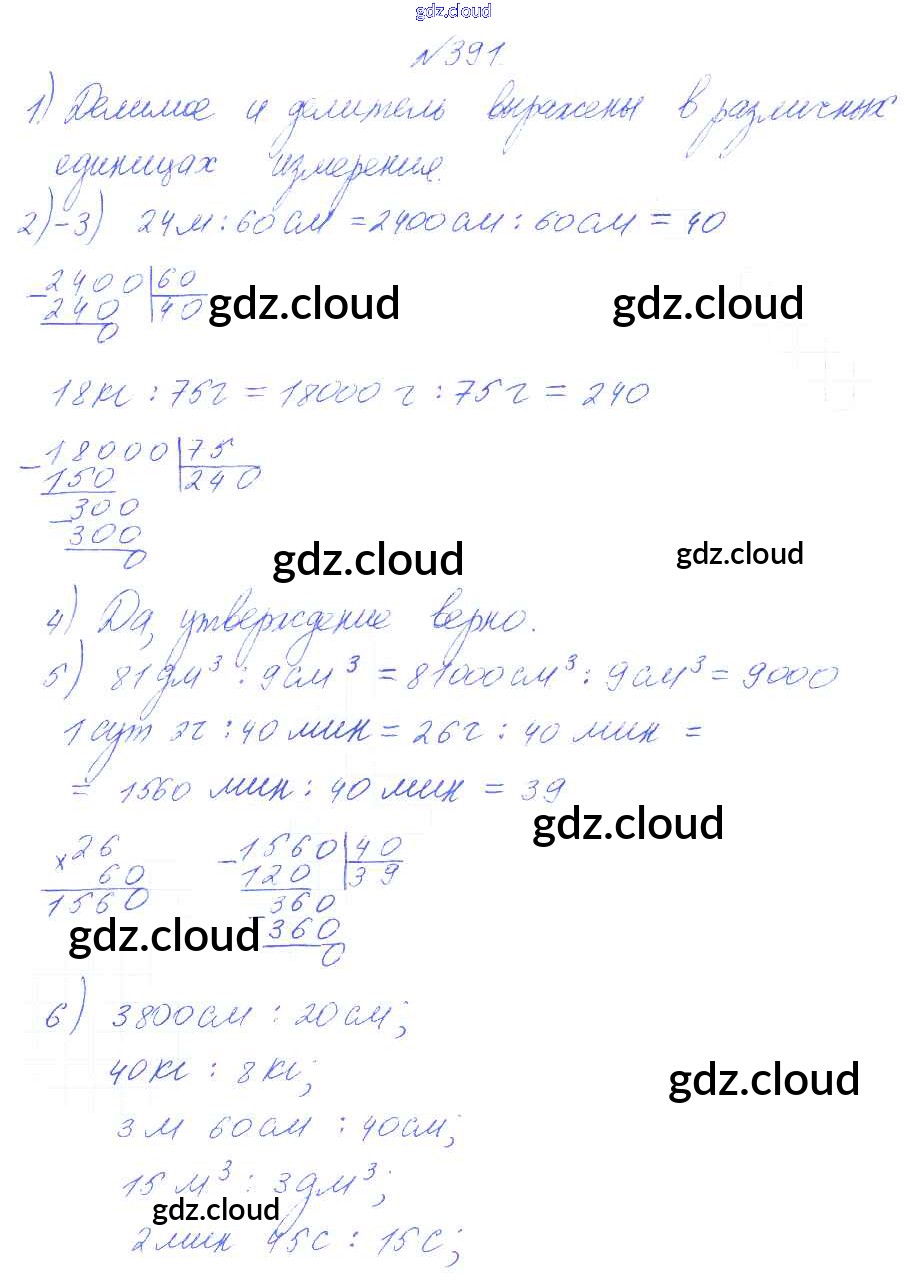 gdz.cloud
№391
1) Делимое и делитель выражены в различных
единицах измерения.
2)-3) 24м : 60см = 2400см : 60см = 40
- 2400 | 60
240 | 40
0
gdz.cloud gdz.cloud
18кг : 75г = 18000г : 75г = 240
- 18000 | 75
150 | 240
- 300
300
0
gdz.cloud gdz.cloud
4) Да, утверждение верно.
5) 81дм³ : 9см³ = 81000см³ : 9см³ = 9000
1 сут 2ч : 40 мин = 26ч : 40 мин =
= 1560 мин : 40 мин = 39
gdz.cloud
x 26 - 1560 | 40
60 120 | 39
1560 - 360
gdz.cloud 360
0
6) 3800см : 20см;
40кг : 8кг;
gdz.cloud
3м 60см : 40см;
15м³ : 3дм³;
gdz.cloud
2мин 45с : 15с;